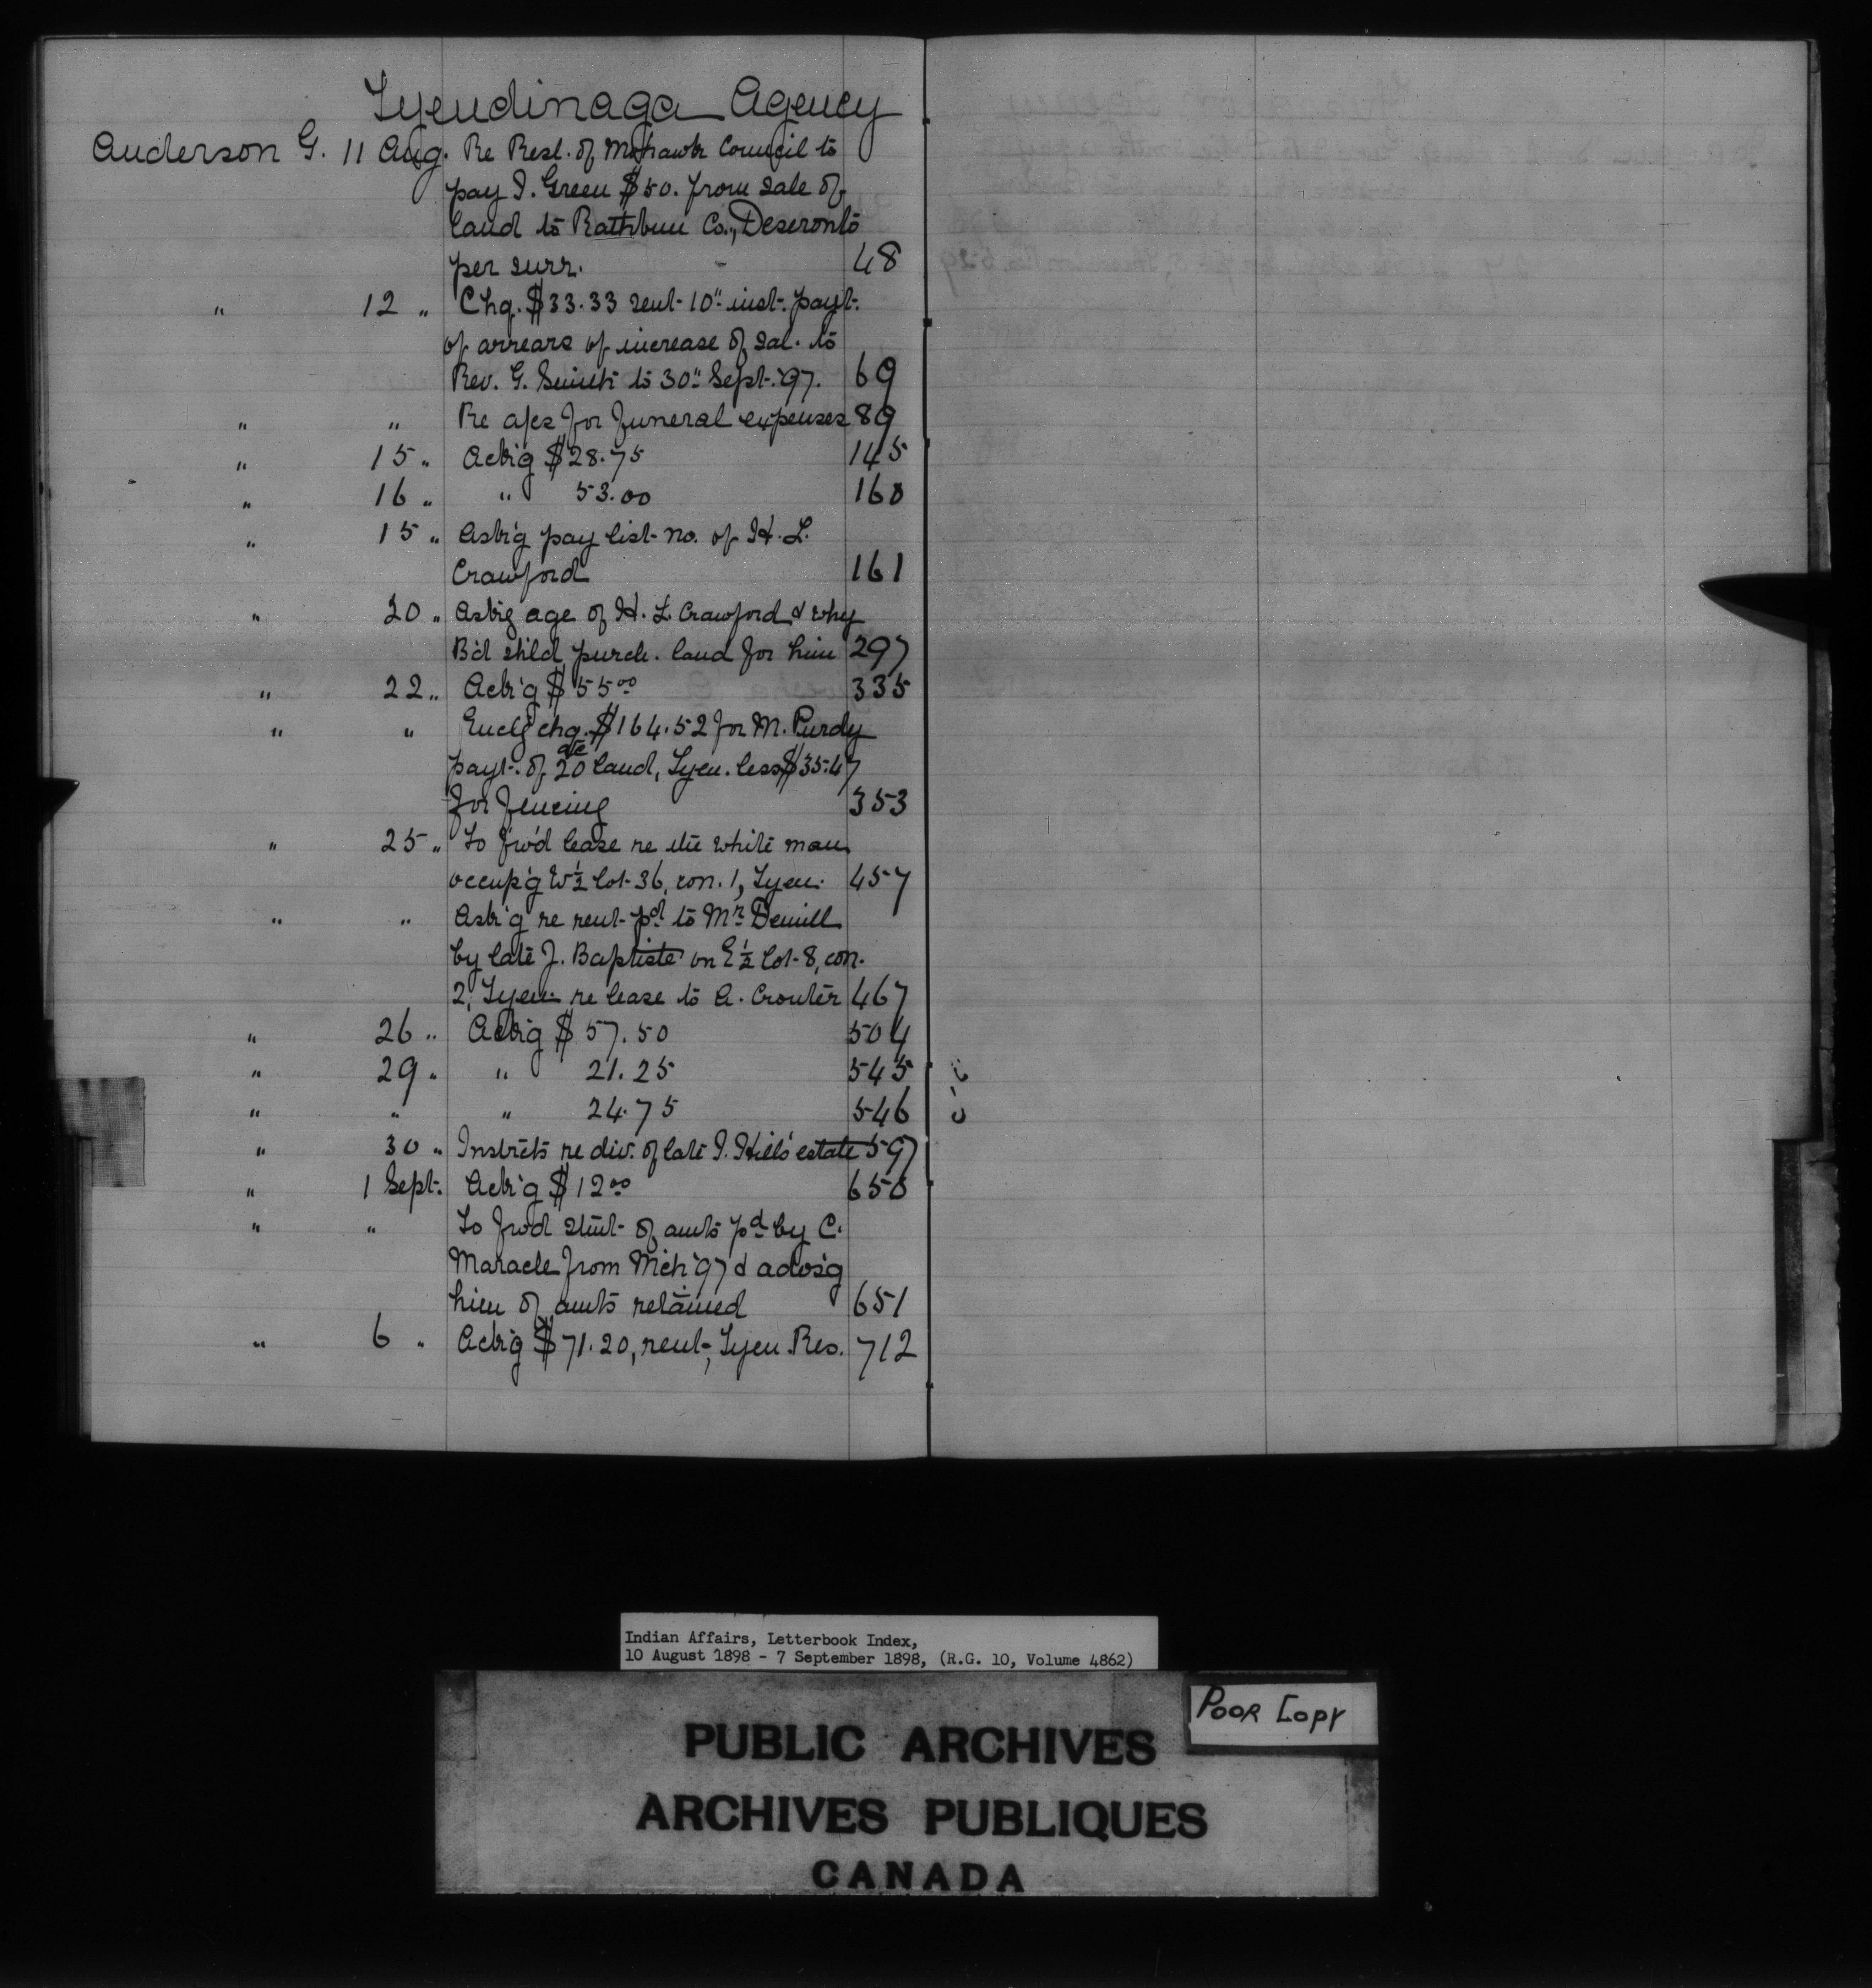 Tyendinaga Agency
Anderson G. 11 Aug. Re Resl. of Mohawk Council to
pay I. Green $50. from sale of
land to Rathbun Co., Deseronto
per surr. - 48
" 12 " Chq. $33.33 sent 10" inst. payt.
of arrears of increase of sal. to
Rev. G. Smith to 30" Sept. '97. 69
" " Re a/cs for funeral expenses 89
" 15 " Ack'g $28.75 145
" 16 " " 53.00 160
" 15 " Ask'g pay list no. of H. L.
Crawford 161
" 20 " Ask'g age of H. L. Crawford & why
B'd sh'ld purch. land for him 297
" 22 " Ack'g $55.00 335
" " Encl'g chq. $164.52 for M. Purdy
payt. of 20 ac land, Tyen. less $35.47
for fencing 353
" 25 " To fw'd lease re the white man
occup'g W½ lot 36, con. 1, Tyen. 457
" " Ask'g re rent pd to Mr Demill
by late J. Baptiste on E½ lot 8, con.
2, Tyen. re lease to A. Crouter 467
" 26 " Ack'g $57.50 504
" 29 " " 21.25 545
" " " 24.75 546
" 30 " Instrcts re div. of late I. Hill's estate 597
" 1 Sept. Ack'g $12.00 650
" " To fw'd stmt of amts pd by C.
Maracle from Mch '97 & advs'g
him of amts retained 651
" 6 " Ack'g $71.20, rent, Tyen. Res. 712
Indian Affairs, Letterbook Index,
10 August 1898 - 7 September 1898, (R.G. 10, Volume 4862)
Poor Copy
PUBLIC ARCHIVES
ARCHIVES PUBLIQUES
CANADA